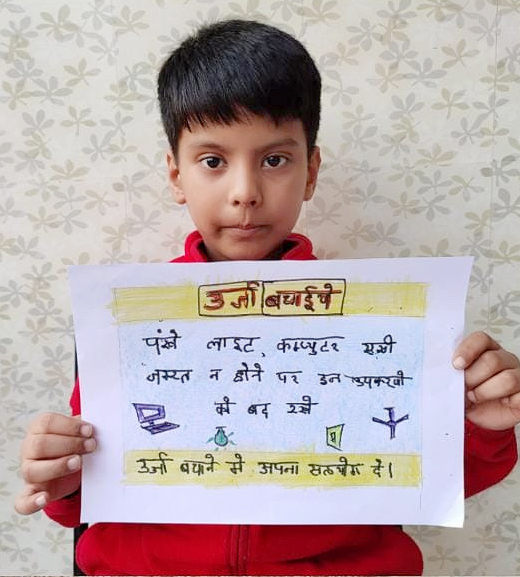 उर्जा बचाईये
पंखे लाइट, कम्प्युटर एसी
जरूरत न होने पर इन उपकरणो
को बंद रखे
उर्जा बचाने मे अपना सहयोग दे।